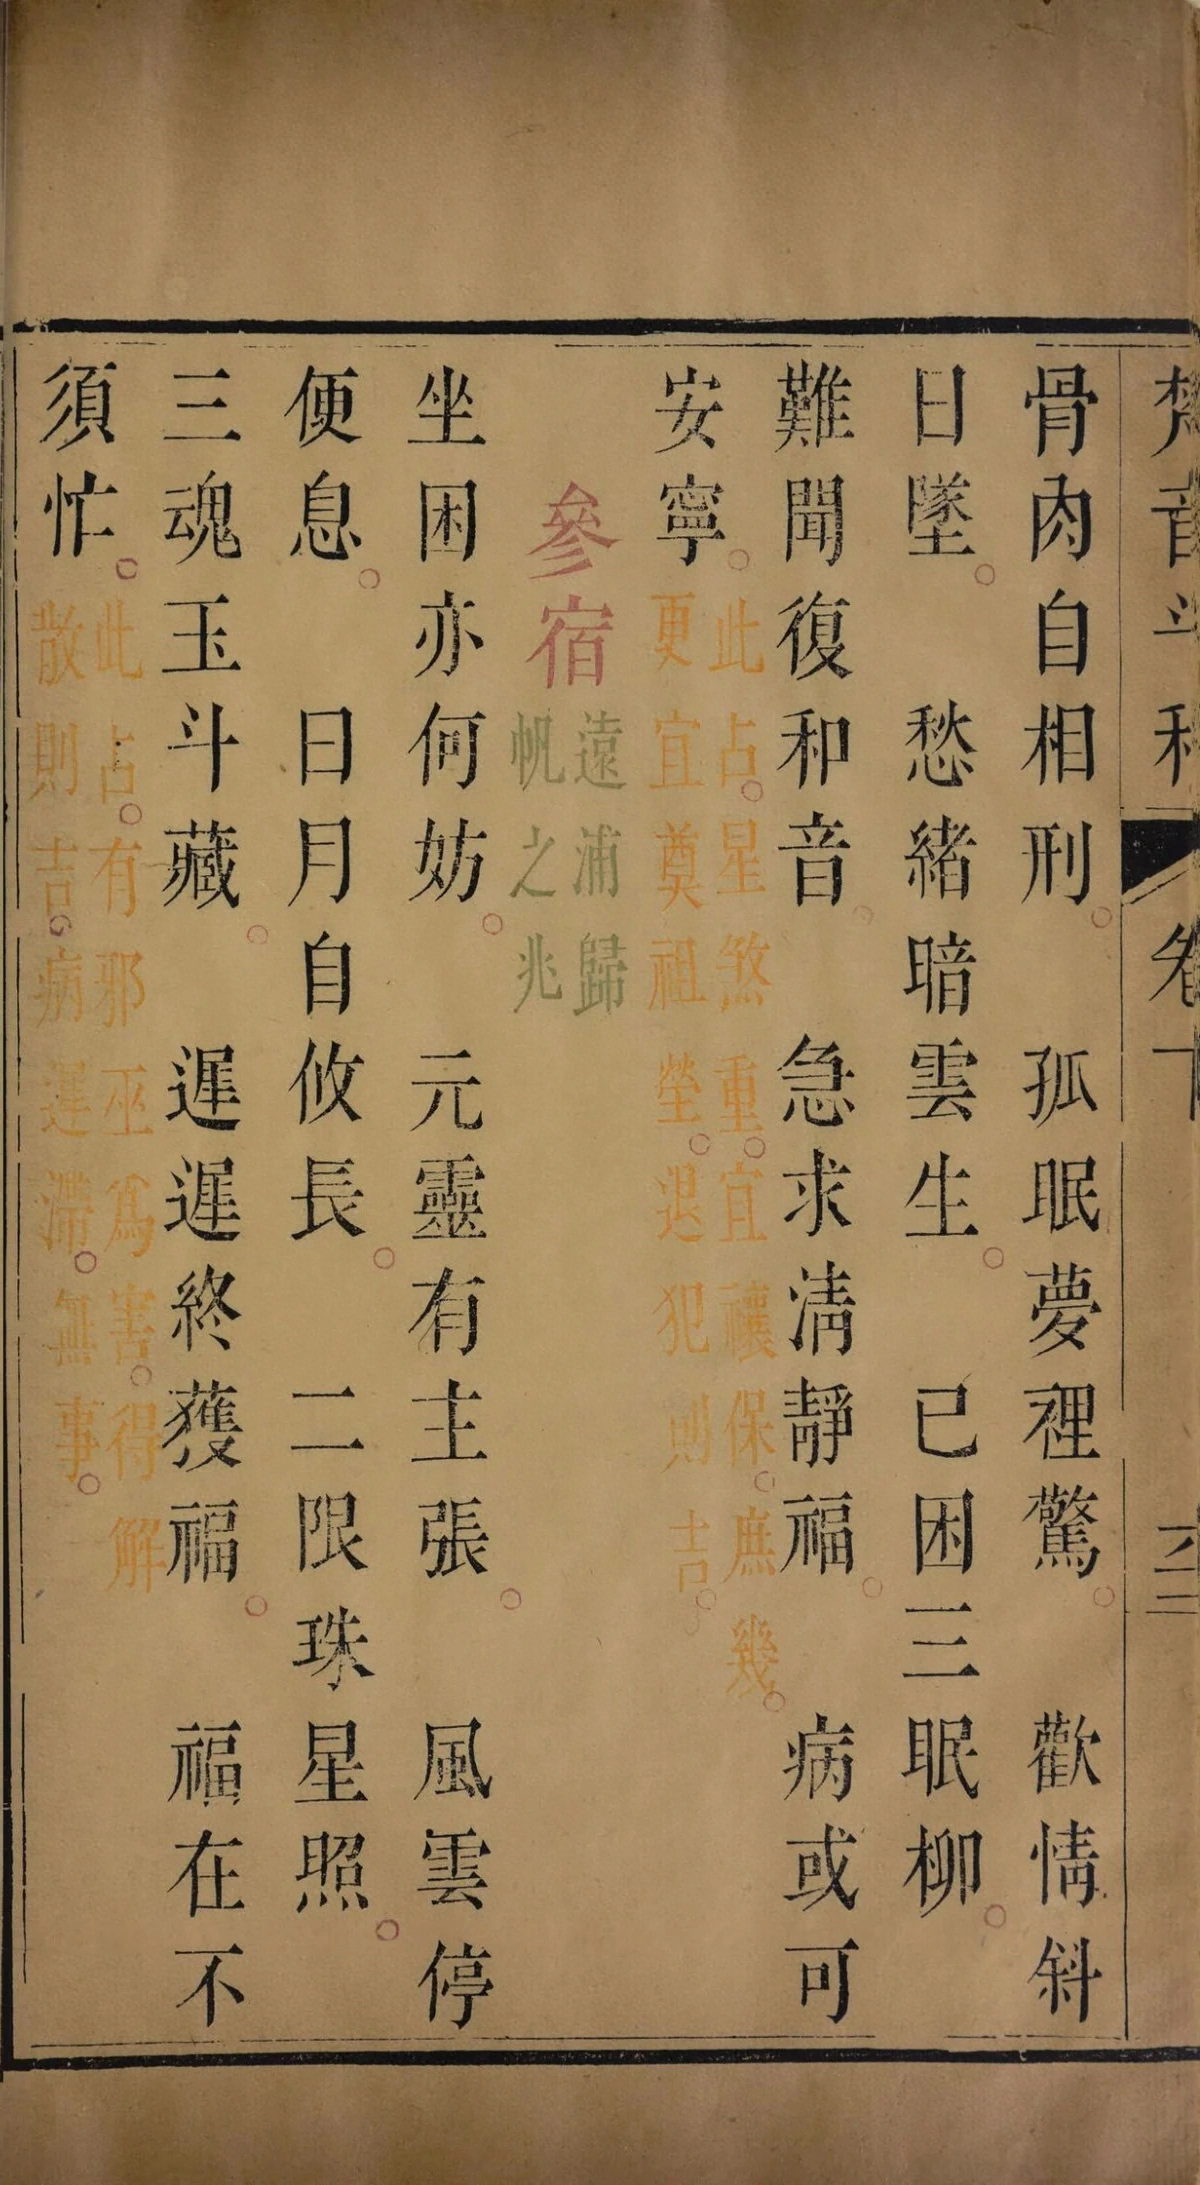 梵音斗科 卷下 六二
骨肉自相刑 孤眠夢裡驚 歡情斜
日墜 愁緒暗雲生 已困三眠柳
難聞復和音 急求清靜福 病或可
安寧
此占星煞重宜禳保庶幾
更宜奠祖塋退犯則吉
參宿
遠浦歸
帆之兆
坐困亦何妨 元靈有主張 風雲停
便息 日月自攸長 二限珠星照
三魂玉斗藏 遲遲終獲福 福在不
須忙
此占有邪巫為害得解
散則吉病遲滯無事